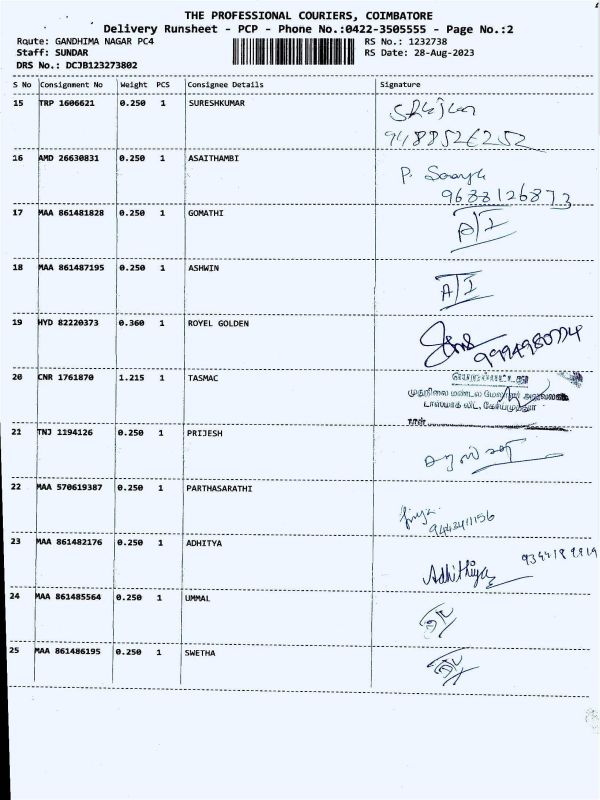 THE PROFESSIONAL COURIERS, COIMBATORE
Delivery Runsheet - PCP - Phone No.:0422-3505555 - Page No.:2
Route: GANDHIMA NAGAR PC4 RS No.: 1232738
Staff: SUNDAR RS Date: 28-Aug-2023
DRS No.: DCJB123273802
S No Consignment No Weight PCS Consignee Details Signature
15 TRP 1606621 0.250 1 SURESHKUMAR
9488526252
16 AMD 26630831 0.250 1 ASAITHAMBI P.
9688126873
17 MAA 861481828 0.250 1 GOMATHI
18 MAA 861487195 0.250 1 ASHWIN
19 HYD 82220373 0.360 1 ROYEL GOLDEN
20 CNR 1761870 1.215 1 TASMAC
முதுநிலை மண்டல
டாஸ்மாக் லிட்.,
21 TNJ 1194126 0.250 1 PRIJESH
22 MAA 570619387 0.250 1 PARTHASARATHI
9443411156
23 MAA 861482176 0.250 1 ADHITYA
Adhithiya
24 MAA 861485564 0.250 1 UMMAL
25 MAA 861486195 0.250 1 SWETHA